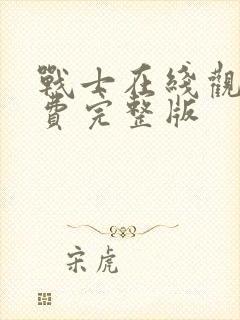 戰士在綫觀
費完整版
宋虎